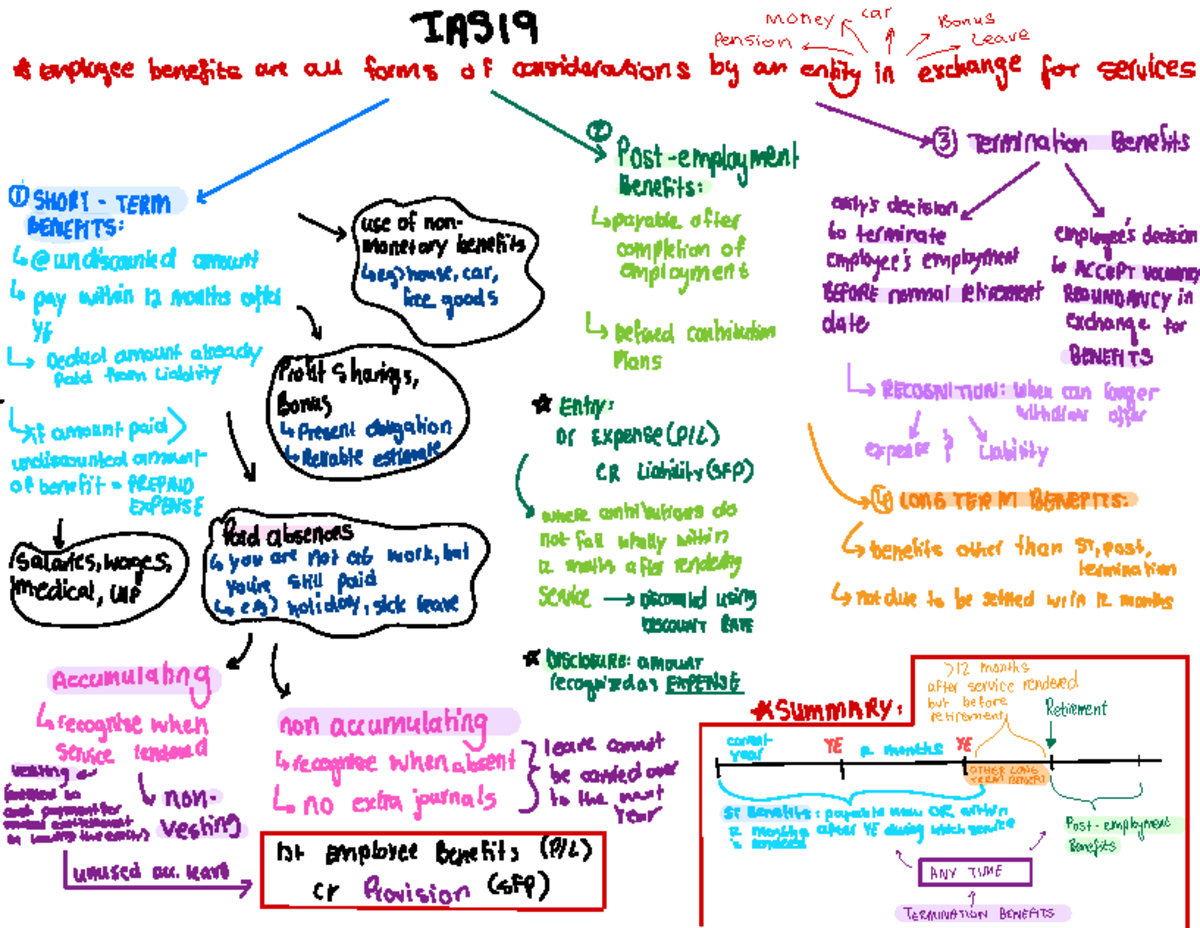 IAS19
Money
car
Bonus
Pension
Leave
* Employee benefits are all forms of considerations by an entity in exchange for services
① SHORT - TERM
BENEFITS:
↳ @ undiscounted amount
↳ pay within 12 months after
YE
↳ Deduct amount already
Paid from Liability
↳ if amount paid >
undiscounted amount
of benefit = PREPAID
EXPENSE
Salaries, wages,
medical, UIF
use of non-
monetary benefits
↳ eg) house, car,
free goods
Profit Sharings,
Bonus
↳ Present obligation
↳ Reliable estimate
Paid absences
↳ you are not at work, but
you're still paid
↳ e.g) holiday, sick leave
Accumulating
↳ recognise when
service rendered
vesting
↳ non-
vesting
unused acc. leave
non accumulating
↳ recognise when absent
↳ no extra journals
leave cannot
be carried over
to the next
Year
Dr Employee Benefits (P/L)
Cr Provision (SFP)
② Post-employment
Benefits:
↳ payable after
completion of
employment
↳ Defined contribution
Plans
* Entry:
Dr Expense (P/L)
CR Liability (SFP)
where contributions do
not fall wholly within
12 months after rendering
Service → Discounted using
DISCOUNT RATE
* DISCLOSURE: amount
recognized as EXPENSE
③ Termination Benefits
entity's decision
to terminate
employee's employment
BEFORE normal retirement
date
employee's decision
to ACCEPT voluntary
REDUNDANCY in
exchange for
BENEFITS
↳ RECOGNITION: When can longer
withdraw offer
expense & Liability
④ LONG TERM BENEFITS:
↳ benefits other than ST, post,
termination
↳ not due to be settled w/in 12 months
* SUMMARY:
>12 months
after service rendered
but before
retirement
Retirement
current
year
YE
12 months
YE
OTHER LONG
TERM BENEFIT
ST Benefits: payable now OR within
12 months after YE during which service
is rendered
Post-employment
Benefits
ANY TIME
TERMINATION BENEFITS